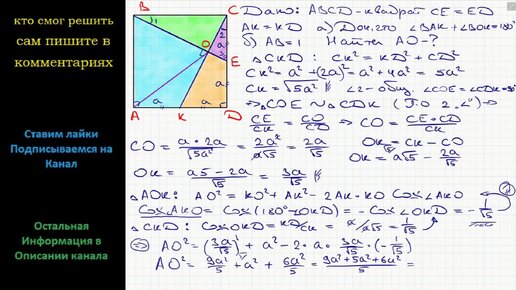 кто смог решить
сам пишите в
комментариях
Ставим лайки
Подписываемся на
Канал
Остальная
Информация в
Описании канала
B
C
E
O
A
K
D
a
a
a
a
1
2
Дано: ABCD - квадрат CE = ED
AK = KD а) Док, что ∠BAK + ∠BOK = 180°
б) AB = 1 Найти AO - ?
△CKD : CK² = KD² + CD²
CK² = a² + (2a)² = a² + 4a² = 5a²
CK = √5a² ∠2 - общ. ∠COE = ∠CDK = 90°
⇒ △COE ∾ △CDK (по 2 ∠)
CE/CK = CO/CD ⇒ CO = CE·CD/CK
CO = a·2a/√5a² = 2a²/a√5 = 2a/√5
OK = CK - CO
OK = a√5 - 2a/√5
OK = a5 - 2a/√5 = 3a/√5
△AOK: AO² = KO² + AK² - 2AK·KO Cos∠AKO
Cos∠AKO = Cos(180° - ∠OKD) = - Cos∠OKD = - 1/√5
△CKD: Cos∠OKD = KD/CK = a/a√5 = 1/√5
⇒ AO² = (3a/√5)² + a² - 2·a·3a/√5·(-1/√5)
AO² = 9a²/5 + a² + 6a²/5 = 9a² + 5a² + 6a²/5 =